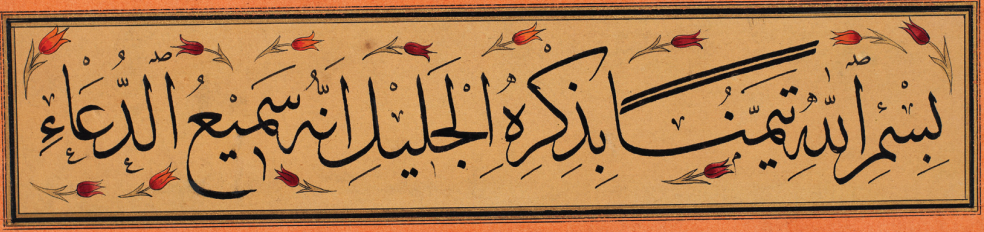 بِسْمِ اللّٰهِ تَيَمُّنًا بِذِكْرِهِ الْجَلِيْلِ اِنَّهُ سَمِيْعُ الدُّعَاءِ